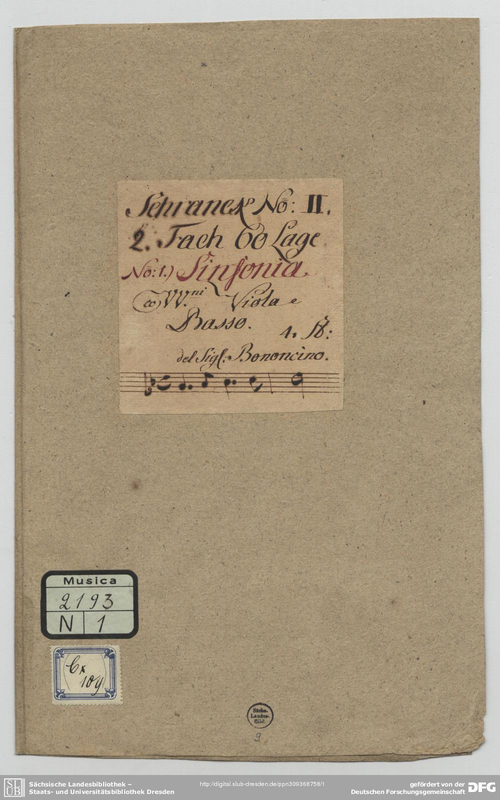 Schranck No: II.
2. Fach 60 Lage
No: 1.) Sinfonia.
co VV.ni Viola e
Basso. 4. St:
del Sigl. Bononcino.
Musica
2193
N 1
Cx
109
Sächs.
Landes-
Bibl.
9.
SLUB
Sächsische Landesbibliothek –
Staats- und Universitätsbibliothek Dresden
http://digital.slub-dresden.de/ppn309368758/1
gefördert von der
Deutschen Forschungsgemeinschaft
DFG